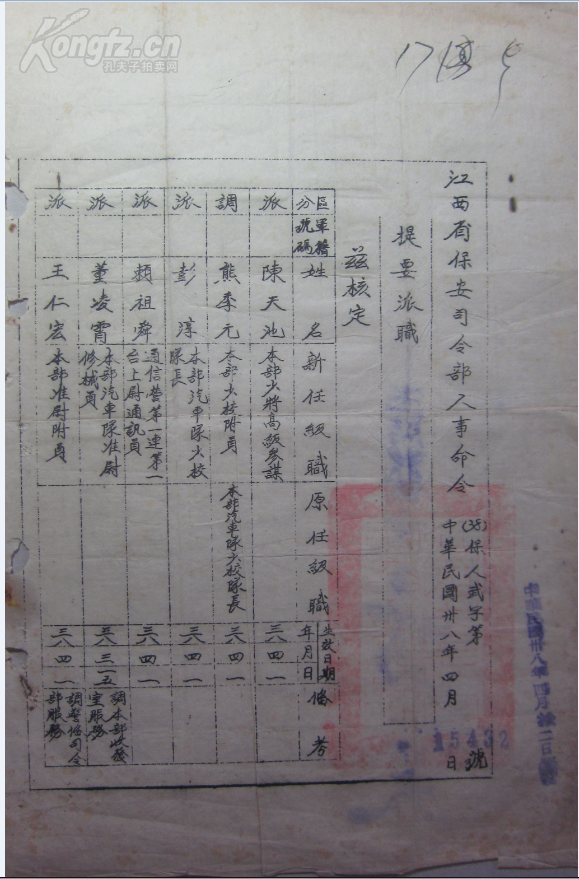 Kongfz.cn
孔夫子拍卖网
江西省保安司令部人事命令
(38)保人弍字第15432號
中華民國卅八年四月 日
提要派職
茲核定
區分 軍籍號碼 姓名 新任級職 原任級職 生效日期 年月日 備考
派 陳天池 本部少將高級參謀 三八 四 一
調 熊季元 本部少校附員 本部汽車隊少校隊長 三八 四 一
派 彭淳 本部汽車隊少校隊長 三八 四 一
派 賴祖舜 通信營第一連第一台上尉通訊員 三八 四 一
派 董凌霄 本部汽車隊准尉修械員 三八 三 一五 調本部收發室服務
派 王仁宏 本部准尉附員 三八 四 一 調警備司令部服務